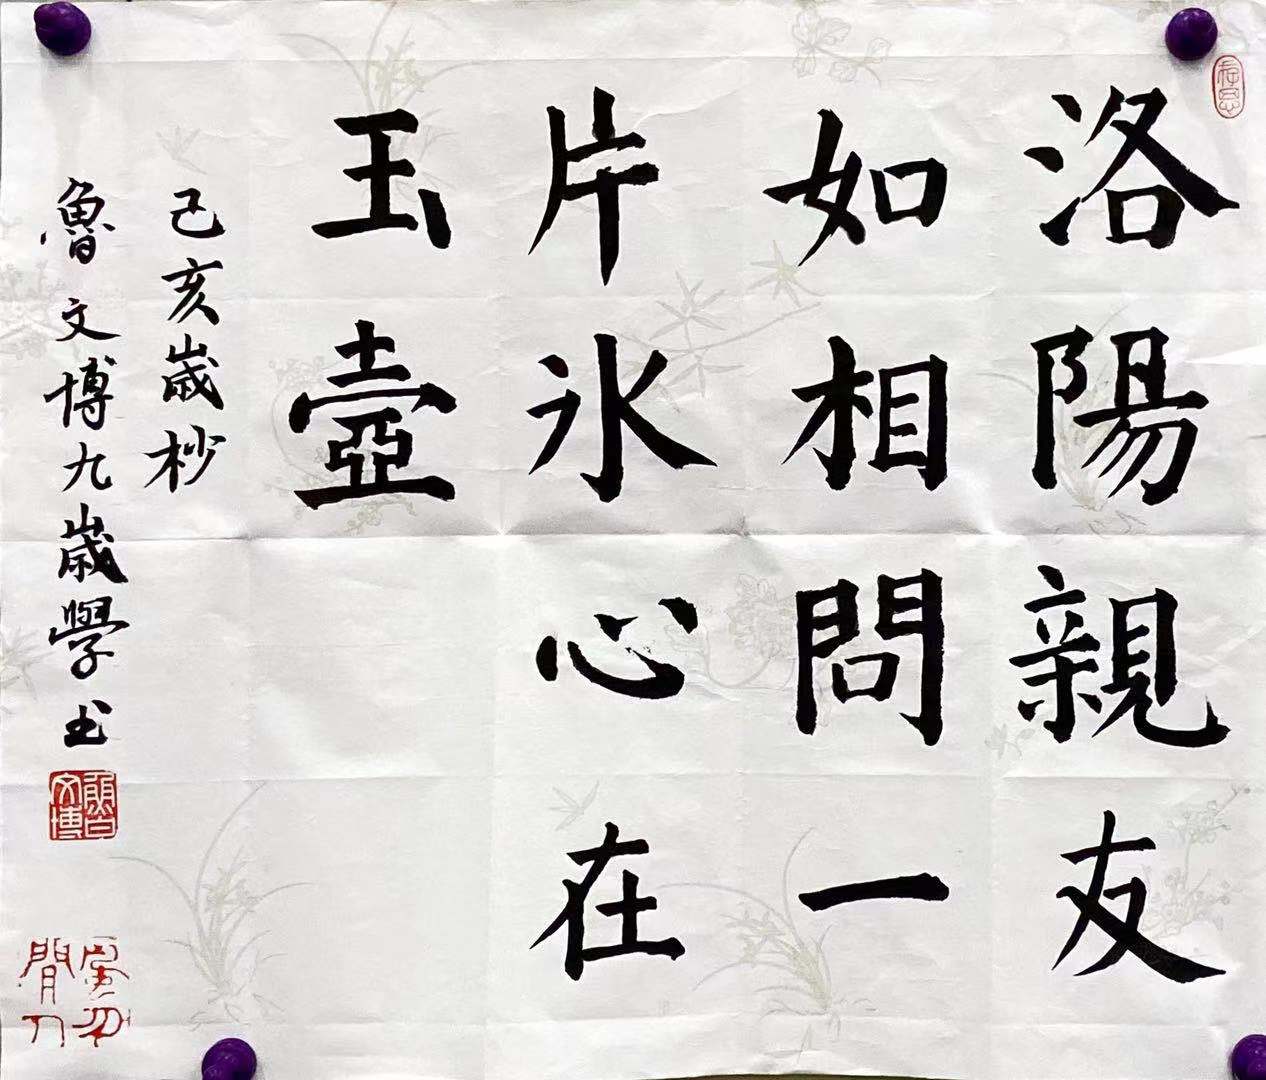 洛陽親友
如相問一
片氷心在
玉壺
己亥歲杪
魯文博九歲學书
魯文博